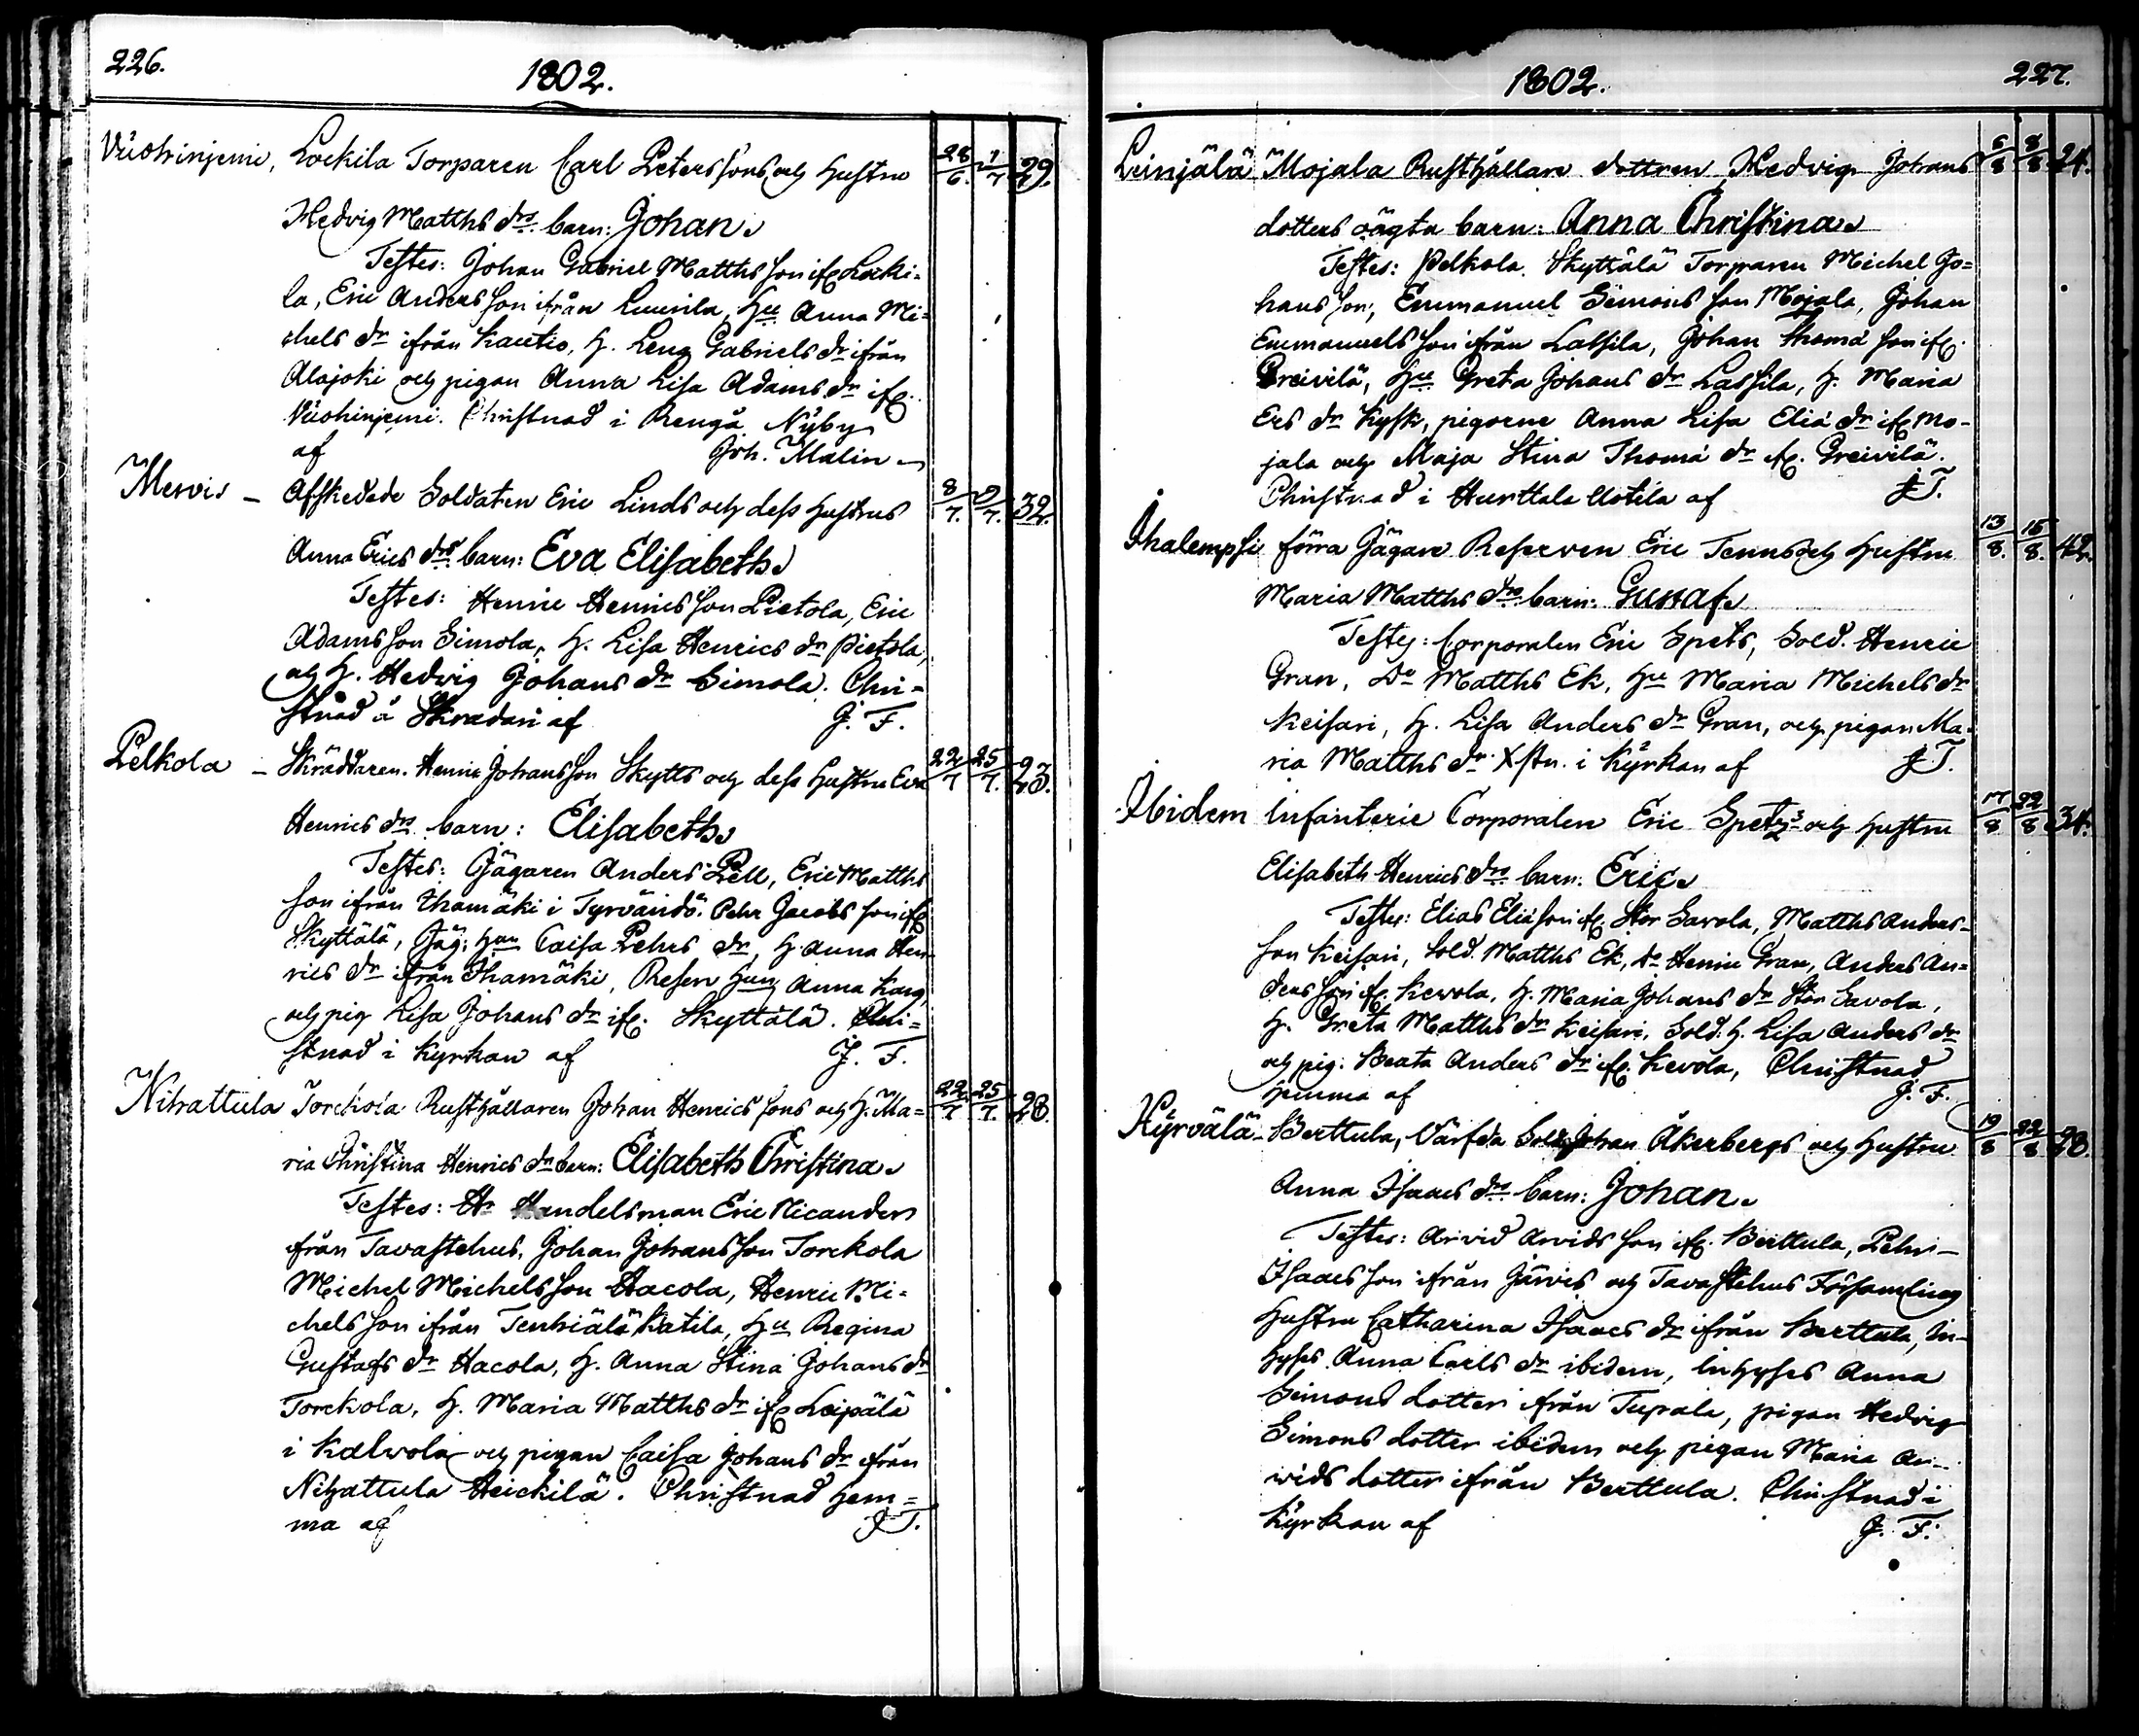 226.
1802.
Vuohinjemi, Lockila Torparen Carl Petersſons och Huſtru 28/6. 1/7 29.
Hedvig Matths drs. barn: Johan.
Teſtes: Johan Gabriel Matthsſon ifr Locki=
la, Eric Andersſon ifrån Lunila, Hu Anna Mi=
chels dr ifrån Kautio, H. Lena Gabriels dr ifrån
Alajoki och pigan Anna Liſa Adams dr ifr.
Vuohinjemi. Chriſtnad i Rengå Nÿby
af Joh. Malin
Mervis – Afſkedade Soldaten Eric Linds och deſs huſtrus 8/7. 9/7. 32.
Anna Erics drs barn: Eva Eliſabeth.
Teſtes: Henric Henricsſon Pietola, Eric
Adamsſon Simola, H. Liſa Henrics dr Pietola,
och H. Hedvig Johans dr Simola. Chri=
ſtnad å Skradari af J. F.
Pelkola – Skräddaren Henric Johansſon Skytts och deſs Huſtru Eva 22/7 25/7. 23.
Henrics drs barn: Eliſabeth.
Teſtes: Jägaren Anders Pell, Eric Matths
ſon ifrån Ihamäki i Tyrvändö. Pehr Jacobsſon ifr
Skyttälä, Jäg: Hun Caiſa Pehrs dr, H. Anna Hen=
rics dr ifrån Ihamäki, Reſerv Hun Anna Karg,
och pig Liſa Johans dr ifr. Skyttälä. Chri=
ſtnad i Kyrkan af J. F.
Nihattula Torckola Ruſthållaren Johan Henricsſons och H. Ma= 22/7 25/7. 28.
ria Chriſtina Henrics dr barn: Eliſabeth Chriſtina.
Teſtes: Hr Handelsman Eric Nicander
från Tavaſtehus, Johan Johansſon Torckola
Michel Michelsſon Hacola, Henric Mi=
chelsſon ifrån Tenhiälä Katila, Hu Regina
Guſtafs dr Hacola, H. Anna Stina Johans dr
Torckola, H. Maria Matths dr ifr Leipälä
i Kalvola och pigan Caiſa Johans dr ifrån
Nihattula Heickilä. Chriſtnad hem=
ma af J. F.
1802.
227.
Leinjälä Mojala Ruſthållare dottren Hedvig Johans 6/8 8/8 24.
dotters oägta barn: Anna Chriſtina.
Teſtes: Pelkola Skyttälä Torparen Michel Jo=
hansſon, Emmanuel Simonsſon Mojala, Johan
Emmanuelsſon ifrån Laſsila, Johan Thomæ ſon ifr.
Greivilä, Hu Greta Johans dr Laſsila, H. Maria
Ers dr Kyſk, pigorne Anna Liſa Eliæ dr ifr Mo-
jala och Maja Stina Thomæ dr ifr. Greivilä.
Chriſtnad i Hurttala Uotila af J. F.
Ihalempſi förra Jägare Reſerven Eric Tenns och Huſtru 13/8. 15/8. 42.
Maria Matths drs barn: Guſtaf.
Teſtes: Corporalen Eric Spets, Sold. Henric
Gran, Do Matths Ek, Hu Maria Michels dr
Keiſari, H. Liſa Anders dr Gran, och pigan Ma=
ria Matths dr Xſtn. i Kÿrkan af J. F.
Ibidem Infanterie Corporalen Eric Spetz's och Huſtru 17/8 22/8 34.
Eliſabeth Henrics drs barn: Eric.
Teſtes: Elias Eliæſon ifr. Stor Savola, Matths Anders-
ſon Keiſari, Sold. Matths Ek, do Henric Gran, Anders An=
dersſon ifr. Kewola, H. Maria Johans dr Stor Savola,
H. Greta Matths dr Keiſari, Sold. H. Liſa Anders dr
och pig. Beata Anders dr ifr. Kevola, Chriſtnad
hemma af J. F.
Hÿrvälä – Berttula, Värfda Sold. Johan Åkerbergs och Huſtru 19/8 22/8 28.
Anna Iſaacs drs barn: Johan.
Teſtes: Arvid Arvidsſon ifr. Berttula, Pehr
Iſaacsſon ifrån Järvis och Tavaſtehus Förſamling
Huſtru Catharina Iſaacs dr ifrån Berttula, In-
hyſes Anna Carls dr ibidem, Inhyſes Anna
Simons dotter ifrån Tupala, pigan Hedvig
Simons dotter ibidem och pigan Maria Ar-
vids dotter ifrån Berttula. Chriſtnad i
Kyrkan af J. F.